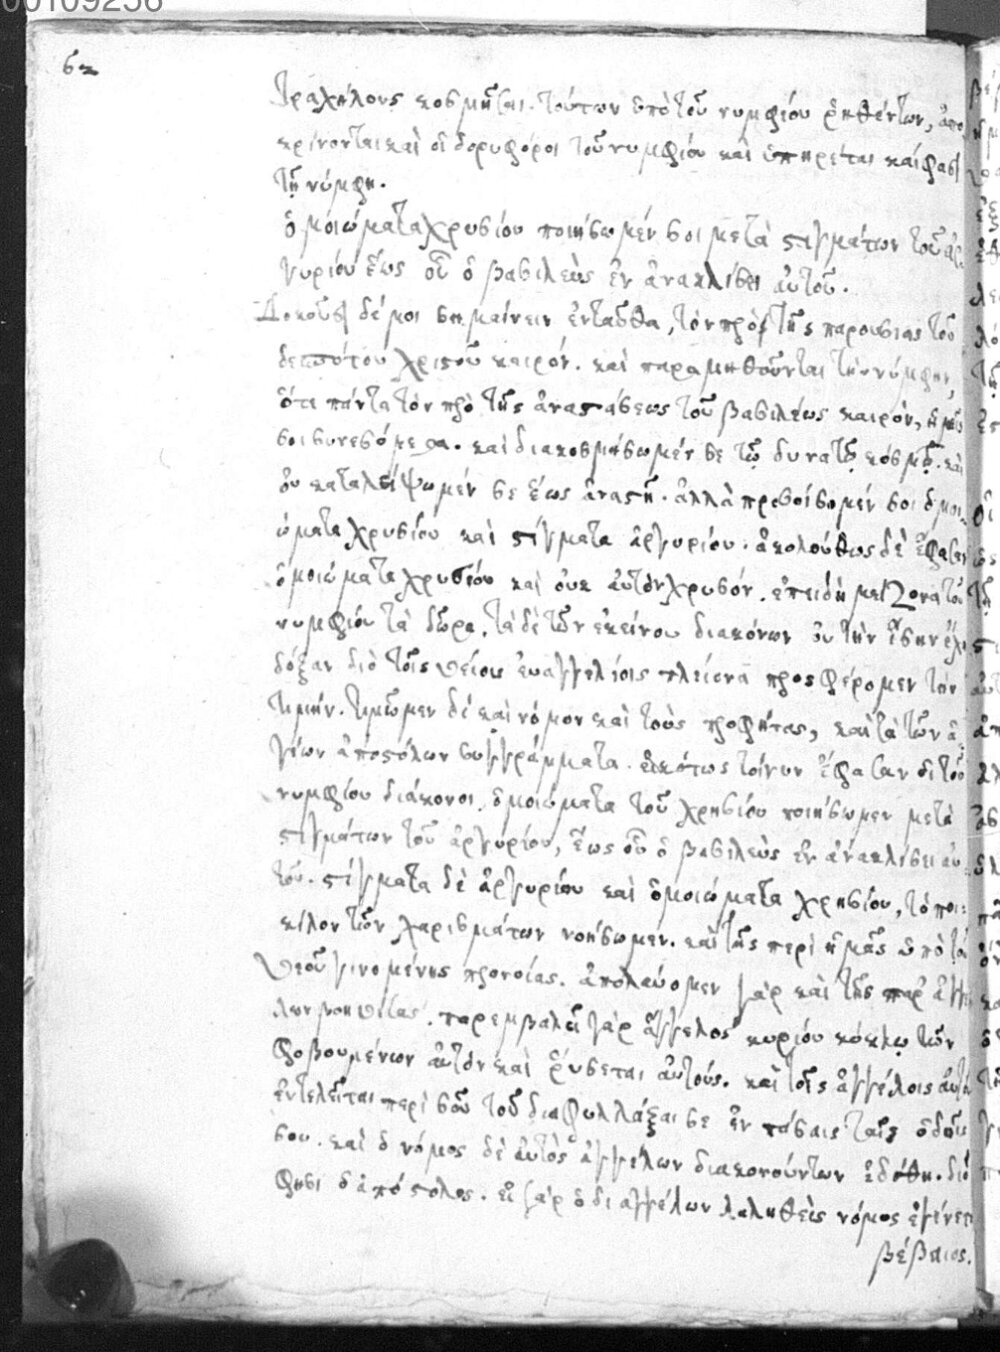 00109256
62
τραχήλους κοσμῆσαι. τούτων ὑπὸ τοῦ νυμφίου ῥηθέντων, ἀπο
κρίνονται καὶ οἱ δορυφόροι τοῦ νυμφίου καὶ ὑπηρέται καί φασι
τῇ νύμφῃ.
ὁμοιώματα χρυσίου ποιήσωμέν σοι μετὰ στιγμάτων τοῦ ἀρ
γυρίου ἕως οὗ ὁ βασιλεὺς ἐν ἀνακλίσει αὐτοῦ.
Δοκοῦσι δέ μοι σημαίνειν ἐνταῦθα, τὸν πρὸ τῆς παρουσίας τοῦ
δεσπότου χριστοῦ καιρόν. καὶ παραμηθοῦνται τὴν νύμφην,
ὅτι πάντα τὸν πρὸ τῆς ἀναστάσεως τοῦ βασιλέως καιρὸν, ἡμεῖς
σοι συνεσόμεθα. καὶ διακοσμήσωμέν σε τῷ δυνατῷ κόσμῳ. καὶ
οὐ καταλείψωμέν σε ἕως ἀναστῇ. ἀλλὰ προσοίσομέν σοι ὁμοι
ώματα χρυσίου καὶ στίγματα ἀργυρίου. ἀκολούθως δὲ ἔφασαν
ὁμοιώματα χρυσίου καὶ οὐκ αὐτὸν χρυσόν. ἐπειδὴ μείζονα τοῦ
νυμφίου τὰ δῶρα. τὰ δὲ τῶν ἐκείνου διακόνων οὐ τὴν ἴσην ἔχει
δόξαν διὸ τοῖς θείοις εὐαγγελίοις πλείονα προσφέρομεν τὴν
τιμήν. τιμῶμεν δὲ καὶ νόμον καὶ τοὺς προφήτας, καὶ τὰ τῶν ἁ
γίων ἀποστόλων συγγράμματα. εἰκότως τοίνυν ἔφασαν οἱ τοῦ
νυμφίου διάκονοι. ὁμοιώματα τοῦ χρησίου ποιήσωμεν μετὰ
στιγμάτων τοῦ ἀργυρίου, ἕως οὗ ὁ βασιλεὺς ἐν ἀνακλίσει αὐ
τοῦ. στίγματα δὲ ἀργυρίου καὶ ὁμοιώματα χρησίου, τὸ ποι
κίλον τῶν χαρισμάτων νοήσωμεν. καὶ τῆς περὶ ἡμᾶς ὑπὸ τοῦ
θεοῦ γινομένης προνοίας. ἀπολαύομεν γὰρ καὶ τῆς παρ' ἀγγέ
λων βοηθείας. παρεμβαλεῖ γὰρ ἄγγελος κυρίου κύκλῳ τῶν
φοβουμένων αὐτὸν καὶ ῥύσεται αὐτούς. καὶ τοῖς ἀγγέλοις αὐτοῦ
ἐντελεῖται περὶ σοῦ τοῦ διαφυλλάξαι σε ἐν πάσαις ταῖς ὁδοῖς
σου. καὶ ὁ νόμος δὲ αὐτὸς ἀγγέλων διακονούντων ἐδόθη. διὸ
φησὶ ὁ ἀπόστολος. εἰ γὰρ ὁ δι ἀγγέλων λαληθεὶς νόμος ἐγένετο
βέβαιος.